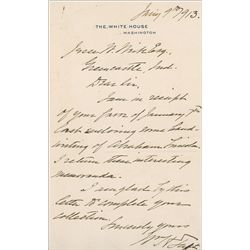 Jany 9th 1913.
THE WHITE HOUSE
WASHINGTON
Jesse W. Weik Esq.
Greencastle, Ind.
Dear Sir,
I am in receipt
of your favor of January 7th
last enclosing some hand-
writing of Abraham Lincoln.
I return these interesting
memoranda.
I am glad by this
letter to complete your
collection.
Sincerely yours
Wm H Taft